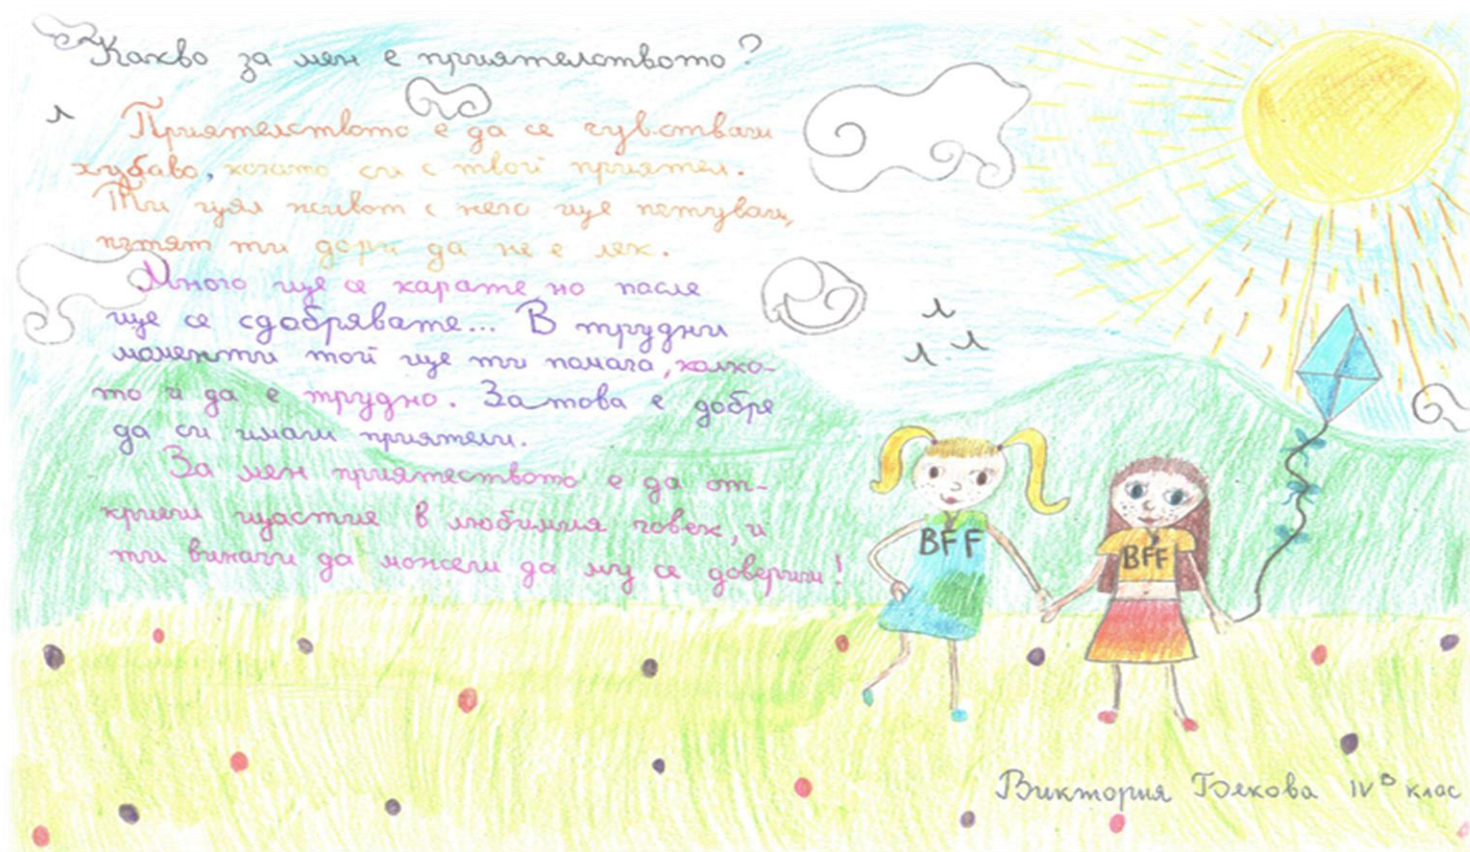 Какво за мен е приятелството?
Приятелството е да се чувстваш
хубаво, когато си с твой приятел.
Ти цял живот с него ще пътуваш,
пътят ти дори да не е лек.
Много ще се карате но после
ще се сдобрявате... В трудни
моменти той ще ти помага, колко-
то и да е трудно. Затова е добре
да си имаш приятели.
За мен приятеството е да от-
криеш щастие в любимия човек, и
ти винаги да можеш да му се довериш!
BFF
BFF
Виктория Бекова IVв клас